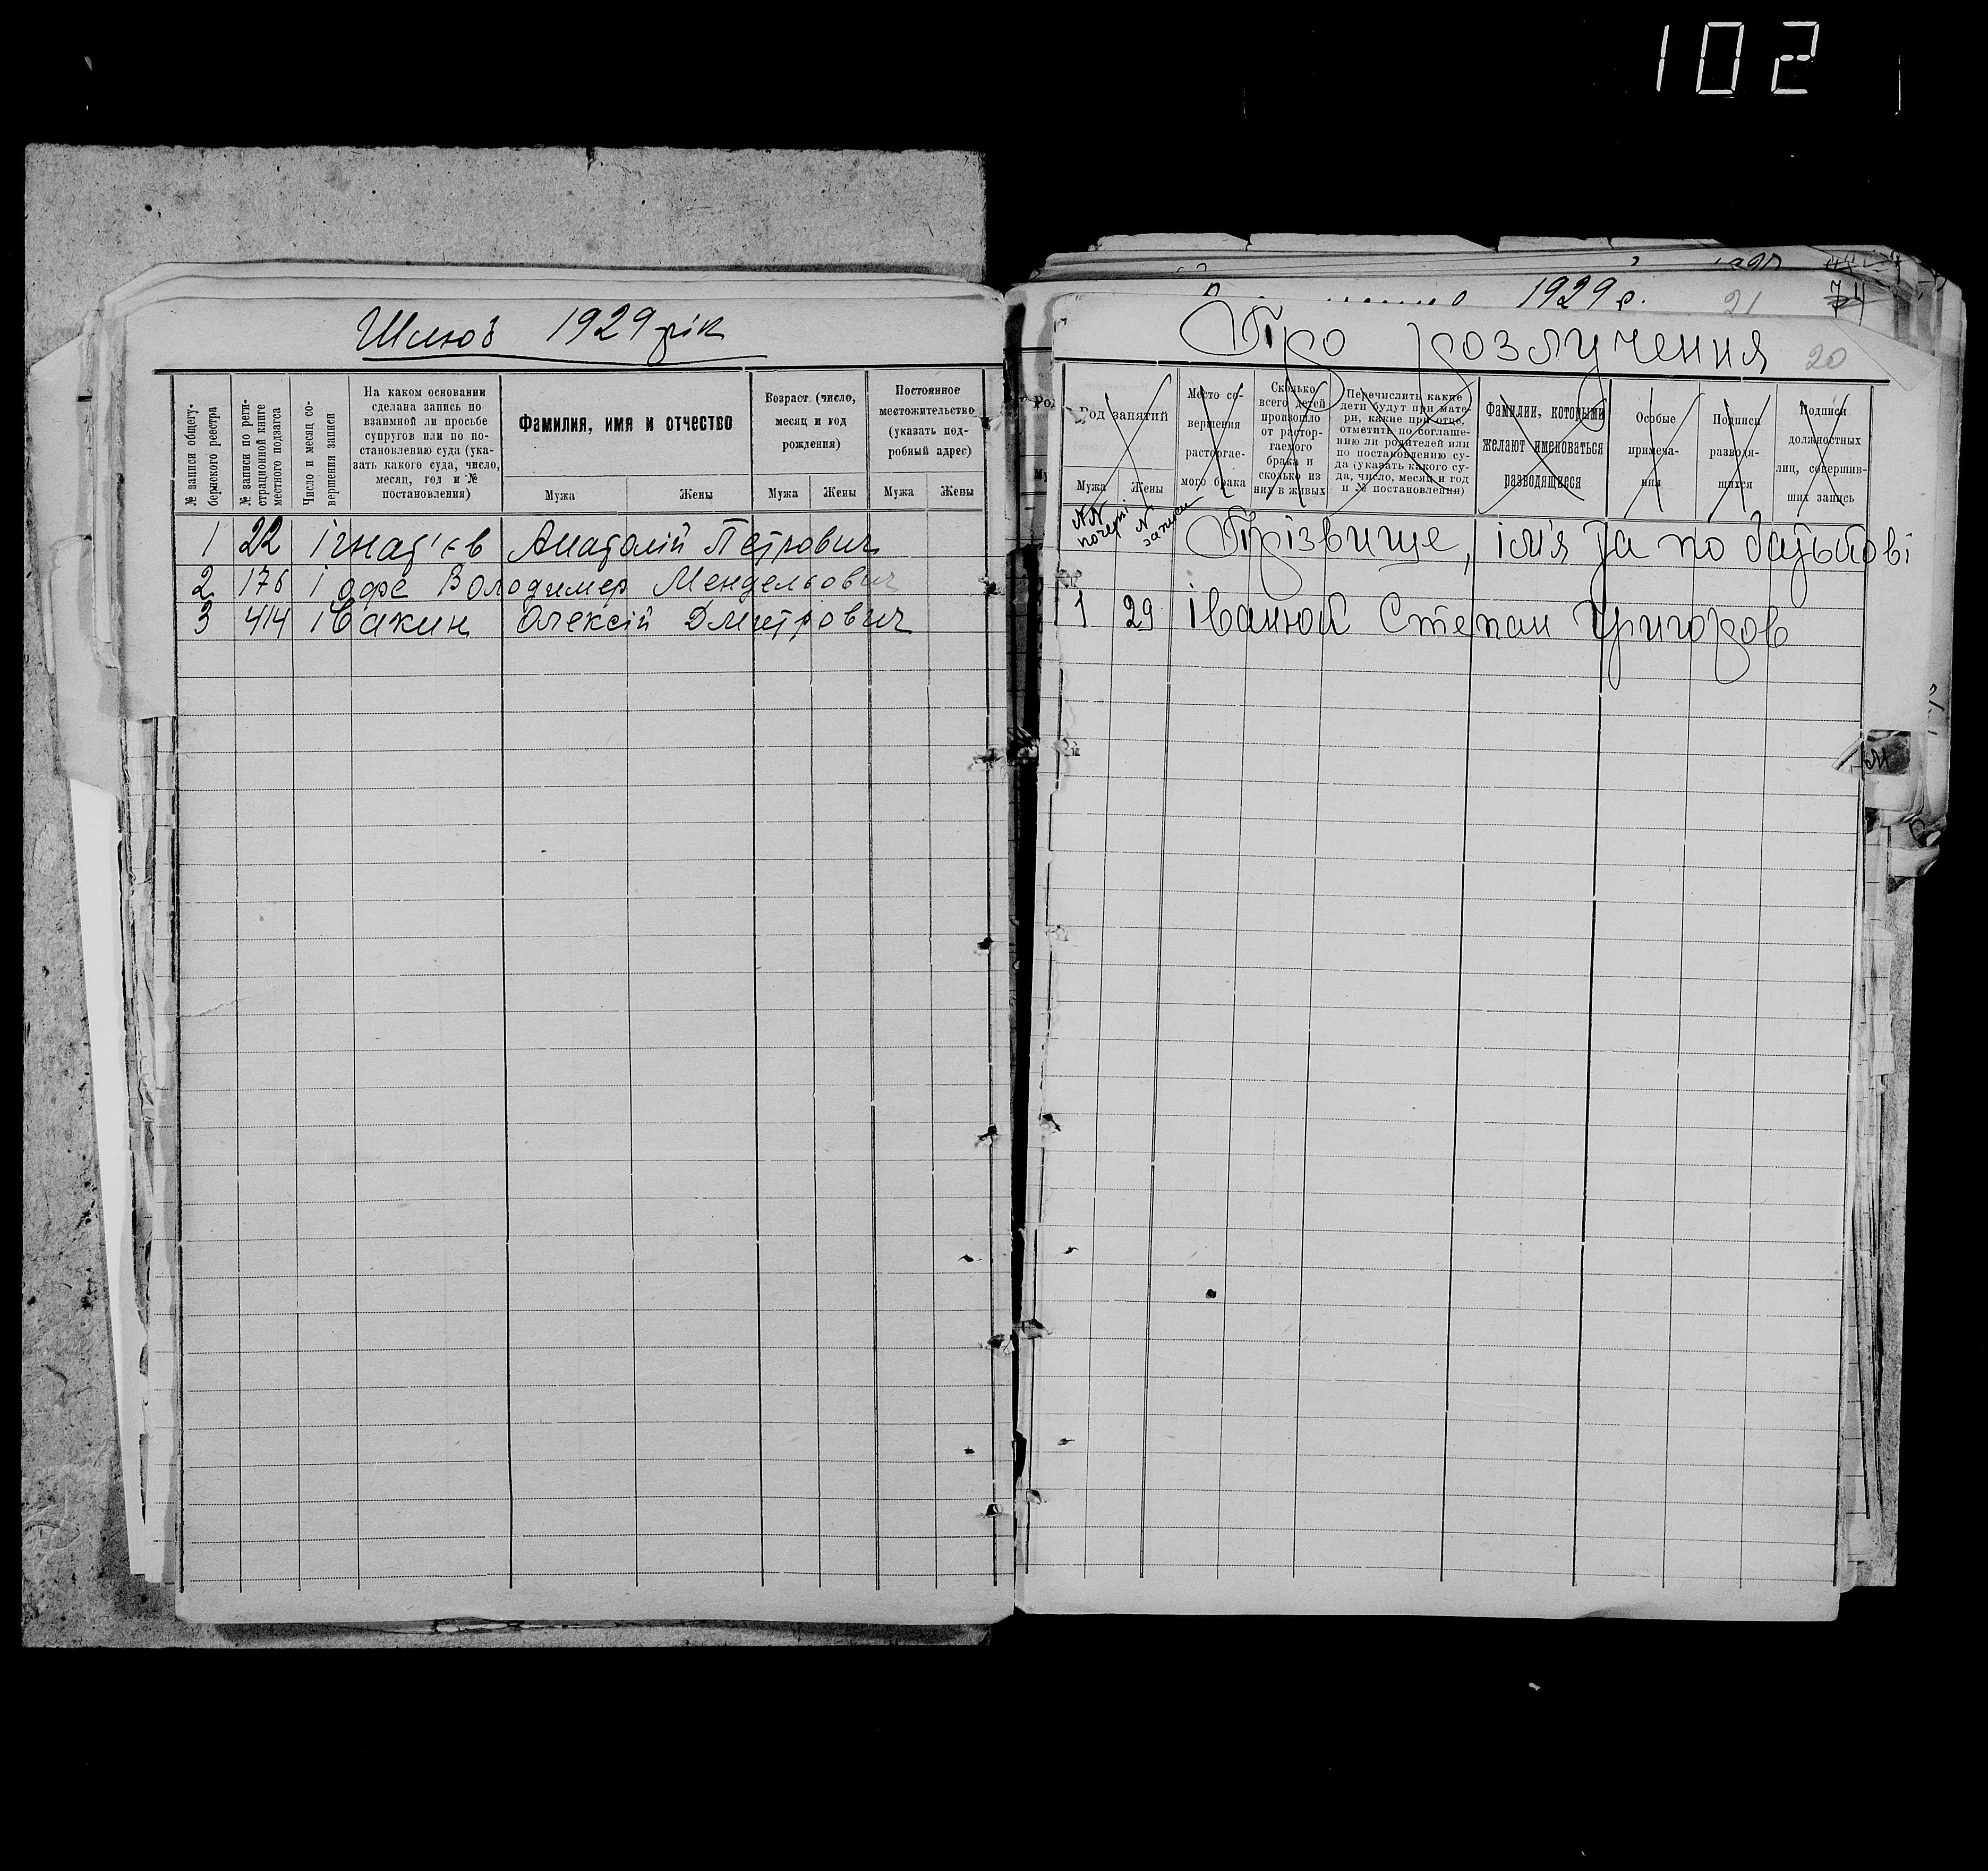 102
Шлюб 1929 рік
№ записи общегу-
бернского реестра
№ записи по реги-
страционной книге
местного подзагса
Число и месяц со-
вершения записи
На каком основании
сделана запись по
взаимной ли просьбе
супругов или по по-
становлению суда (ука-
зать какого суда, число,
месяц, год и №
постановления)
Фамилия, имя и отчество
Мужа Жены
Возраст (число,
месяц и год
рождения)
Мужа Жены
Постоянное
местожительство
(указать под-
робный адрес)
Мужа Жены
1 22 Ігнат'єв Анатолій Петрович
2 176 Іофе Володимер Мендельович
3 414 Івакин Олексій Дмитрович
1929 р. 21 74
Про розлучення 20
Род занятий
Мужа Жены
Место со-
вершения
расторгае-
мого брака
Сколько
всего детей
произошло
от растор-
гаемого
брака и
сколько из
них в живых
Перечислить какие
дети будут при мате-
ри, какие при отце,
отметить по соглаше-
нию ли родителей или
по постановлению су-
да (указать какого су-
да, число, месяц и год
и № постановления)
Фамилии, которыми
желают именоваться
разводящиеся
Особые
примеча-
ния
Подписи
разводя-
щихся
Подписи
должностных
лиц, совершив-
ших запись
NN почерг N записи Прізвище, ім'я та по батькові
1 29 Іванюк Степан Григоров